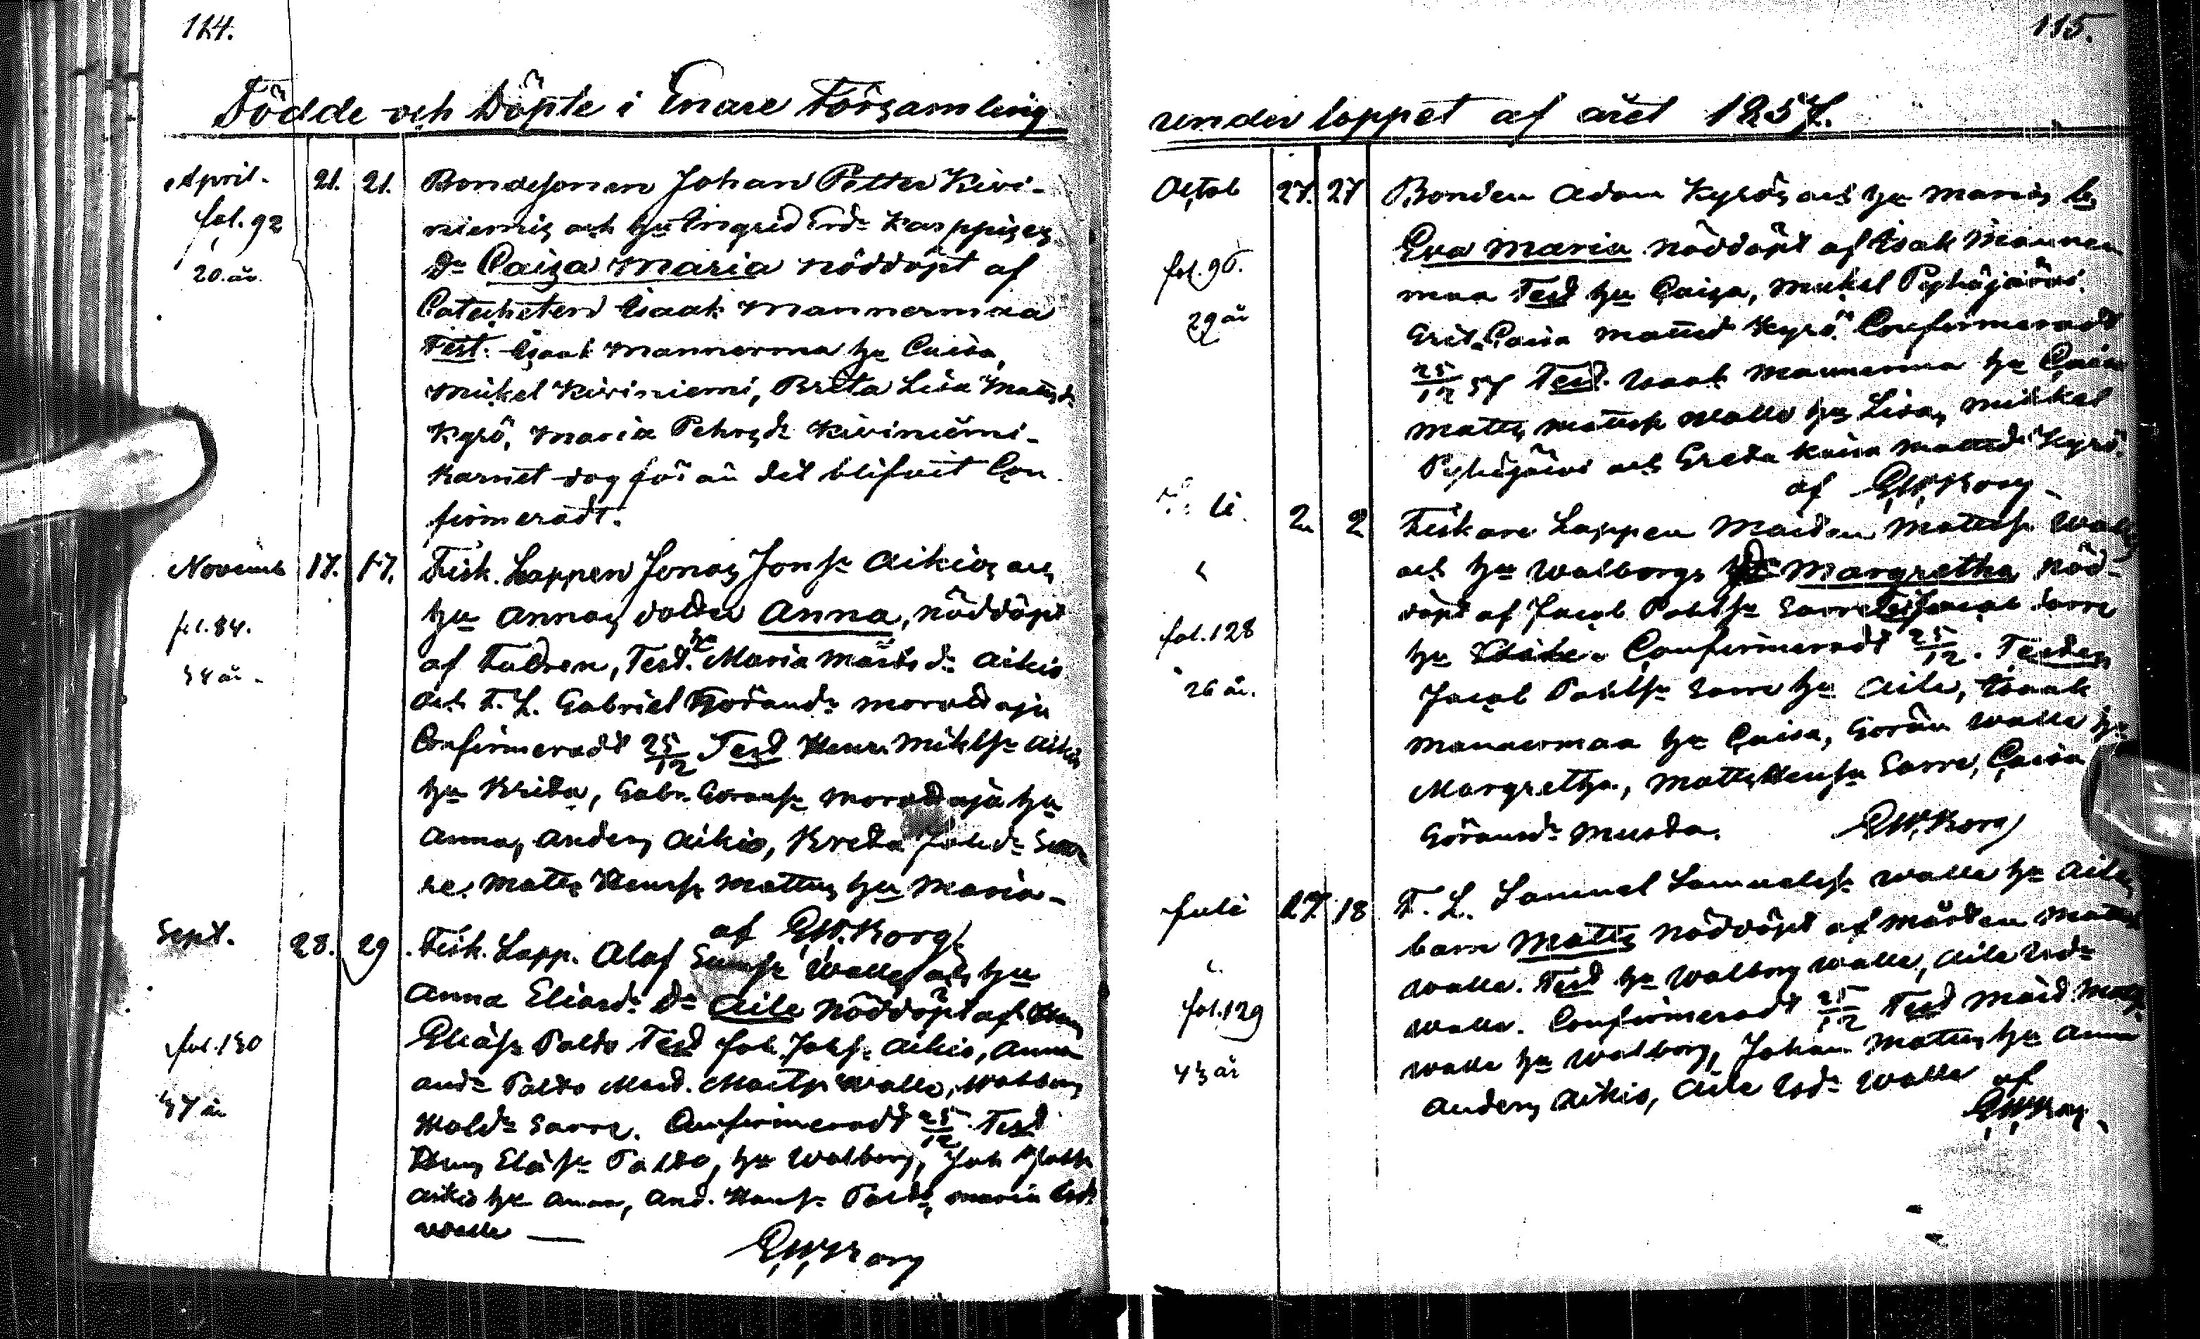 114.
Födde och Döpte i Enare Församling
April.
fol. 92
20 år.
21. 21.
Bondesonen Johan Petter Kivi-
niemis och hu Ingrid Kappises
Dr Caisa Maria nöddöpt af
Catecheten Isaak Mannermaa
Test. Isaak Mannerma hu Caisa,
Mickel Kiviniemi, Breta Lisa Matsdr
Kyrö, Maria Pehrsdr Kiviniemi-
Barnet dog för än det blifvit Con
firmeradt.
Novemb
fol. 84.
34 år.
17. 17.
Fisk. Lappen Jonas Jonss. Aikios och
hu Annas dotter Anna, nöddöpt
af Fadren, Test. hu Maria Matsdr Aikio
och F. L. Gabriel Göransdr Morottaja
Confirmeradt 25/12 Test Henr. Miklss. Aikio
hu Brita, Gabr. Göranss. Morottaja hu
Anna, Anders Aikio, Breta Johdr Sar
re. Matts Henrss. Mattus hu Maria-
af E.W.Borg
Sept.
fol. 130
37 år
28. 29
Fisk. Lapp. Olaf Walles och hu
Anna Eliasdr Dr Aile nöddöpt af
Eliass. Paldo Test Joh. Johss. Aikio, Anna
andr Paldo Mard. Martss. Walle, Walborg
Sarre. Confirmeradt 25/12 Test
Eliass. Paldo, hu Walborg, Joh
Aikio hu Anna, And. Hanss. Paldo, Maria
Walle —
E.W.Borg
115.
under loppet af året 1857.
Octob
fol. 96.
29 år
27. 27
Bonden Adam Kyrös och hu Marias b.
Eva Maria nöddöpt af Isak Manner
maa Test hu Caisa, Mickel Pyhäjärvi
Gret. Caisa Mattsd Kyrö. Confirmeradt
25/12 57 Test. Isaak Mannerma hu Caisa
Matts Mattss. Walle hu Lisa, Mickel
Pyhäjärvi och Greta Kaisa Mattsd Kyrö.
af E.W.Borg
fol. 128
26 år.
2. 2
Fiskare Lappen Morten Mattss. Walles
och hu Walborgs Dr Margretha nöd-
döpt af Jacob Pohlss. Sarre Test Jacob Sarre
hu Confirmeradt 25/12. Testes
Jacob Pohlss. Sarre hu Aile, Isaak
Mannermaa hu Caisa, Göran Walle hu
Margretha, Matts Henrss. Sarre, Caisa
Göransdr Musta.
E.W.Borg
Juli
fol. 129
43 år
17. 18
F. L. Samuel Samuelss. Walle hu Ailes
barn Matts nöddöpt af Mårten Matts
Walle. Test hu Walborg Walle, Aile
Walle. Confirmeradt 25/12 Test Mård Matts
Walle hu Walborg, Johan Mattus hu Anna
Anders Aikio, Aile Walle af
E.W.Borg.